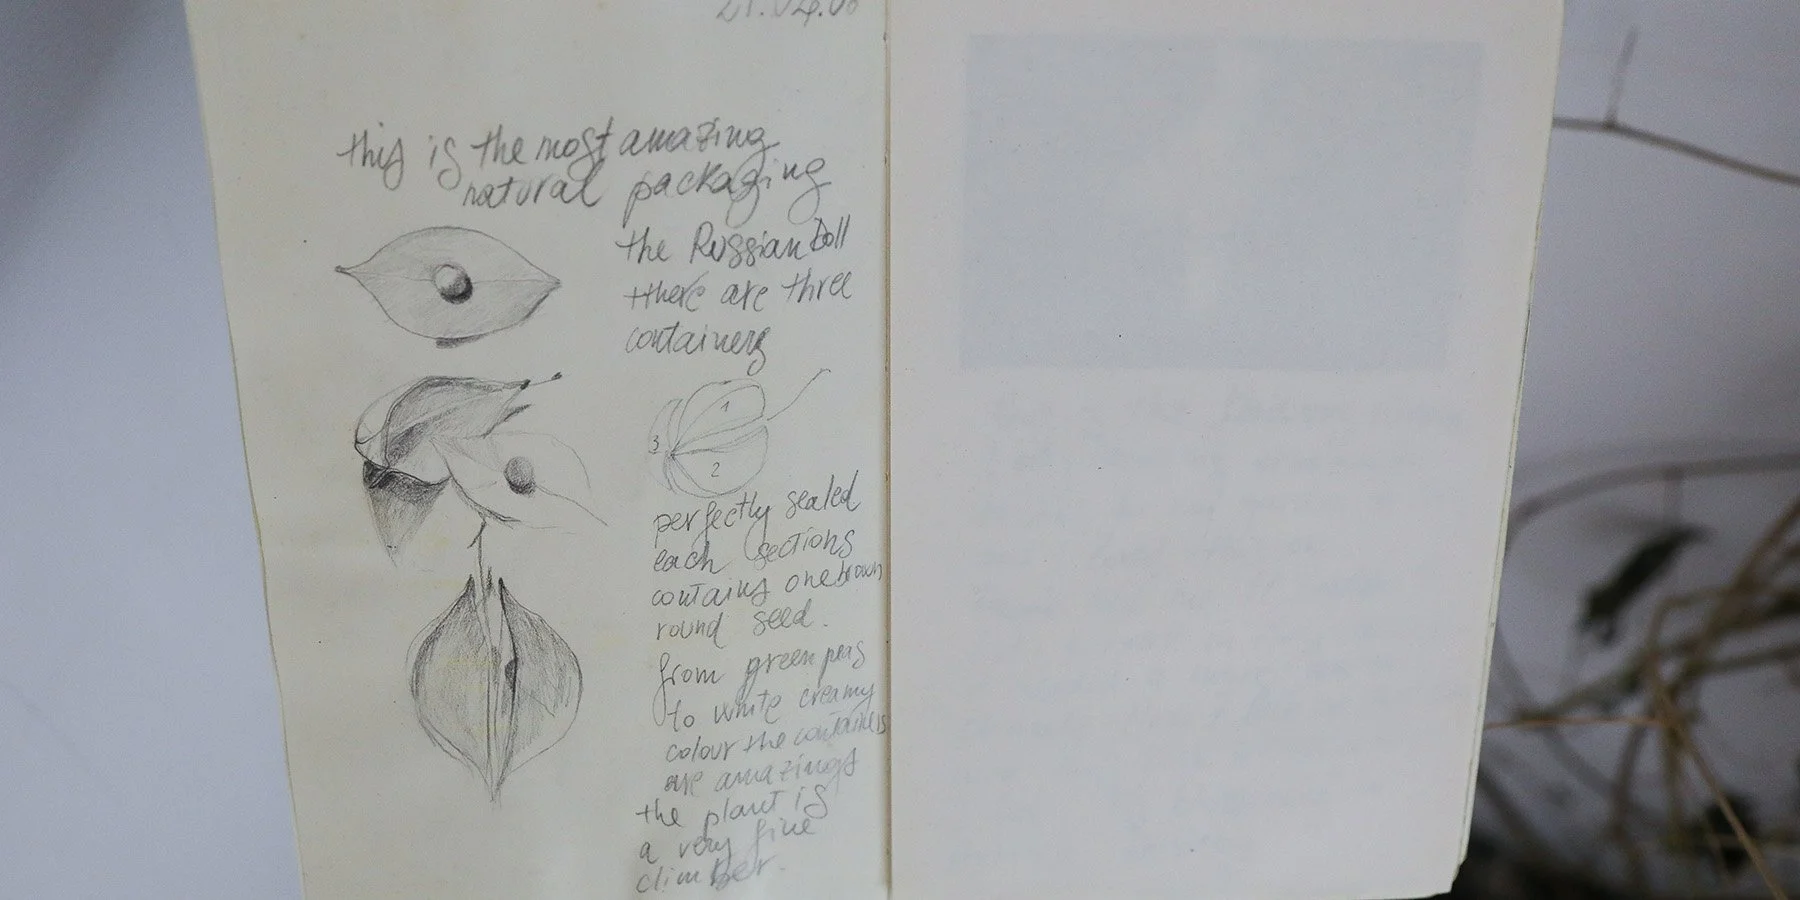 this is the most amazing
natural packaging
the Russian Doll
there are three
containers
1
3
2
perfectly sealed
each sections
contains one brown
round seed.
from green peas
to white creamy
colour the containers
are amazing
the plant is
a very fine
climber.